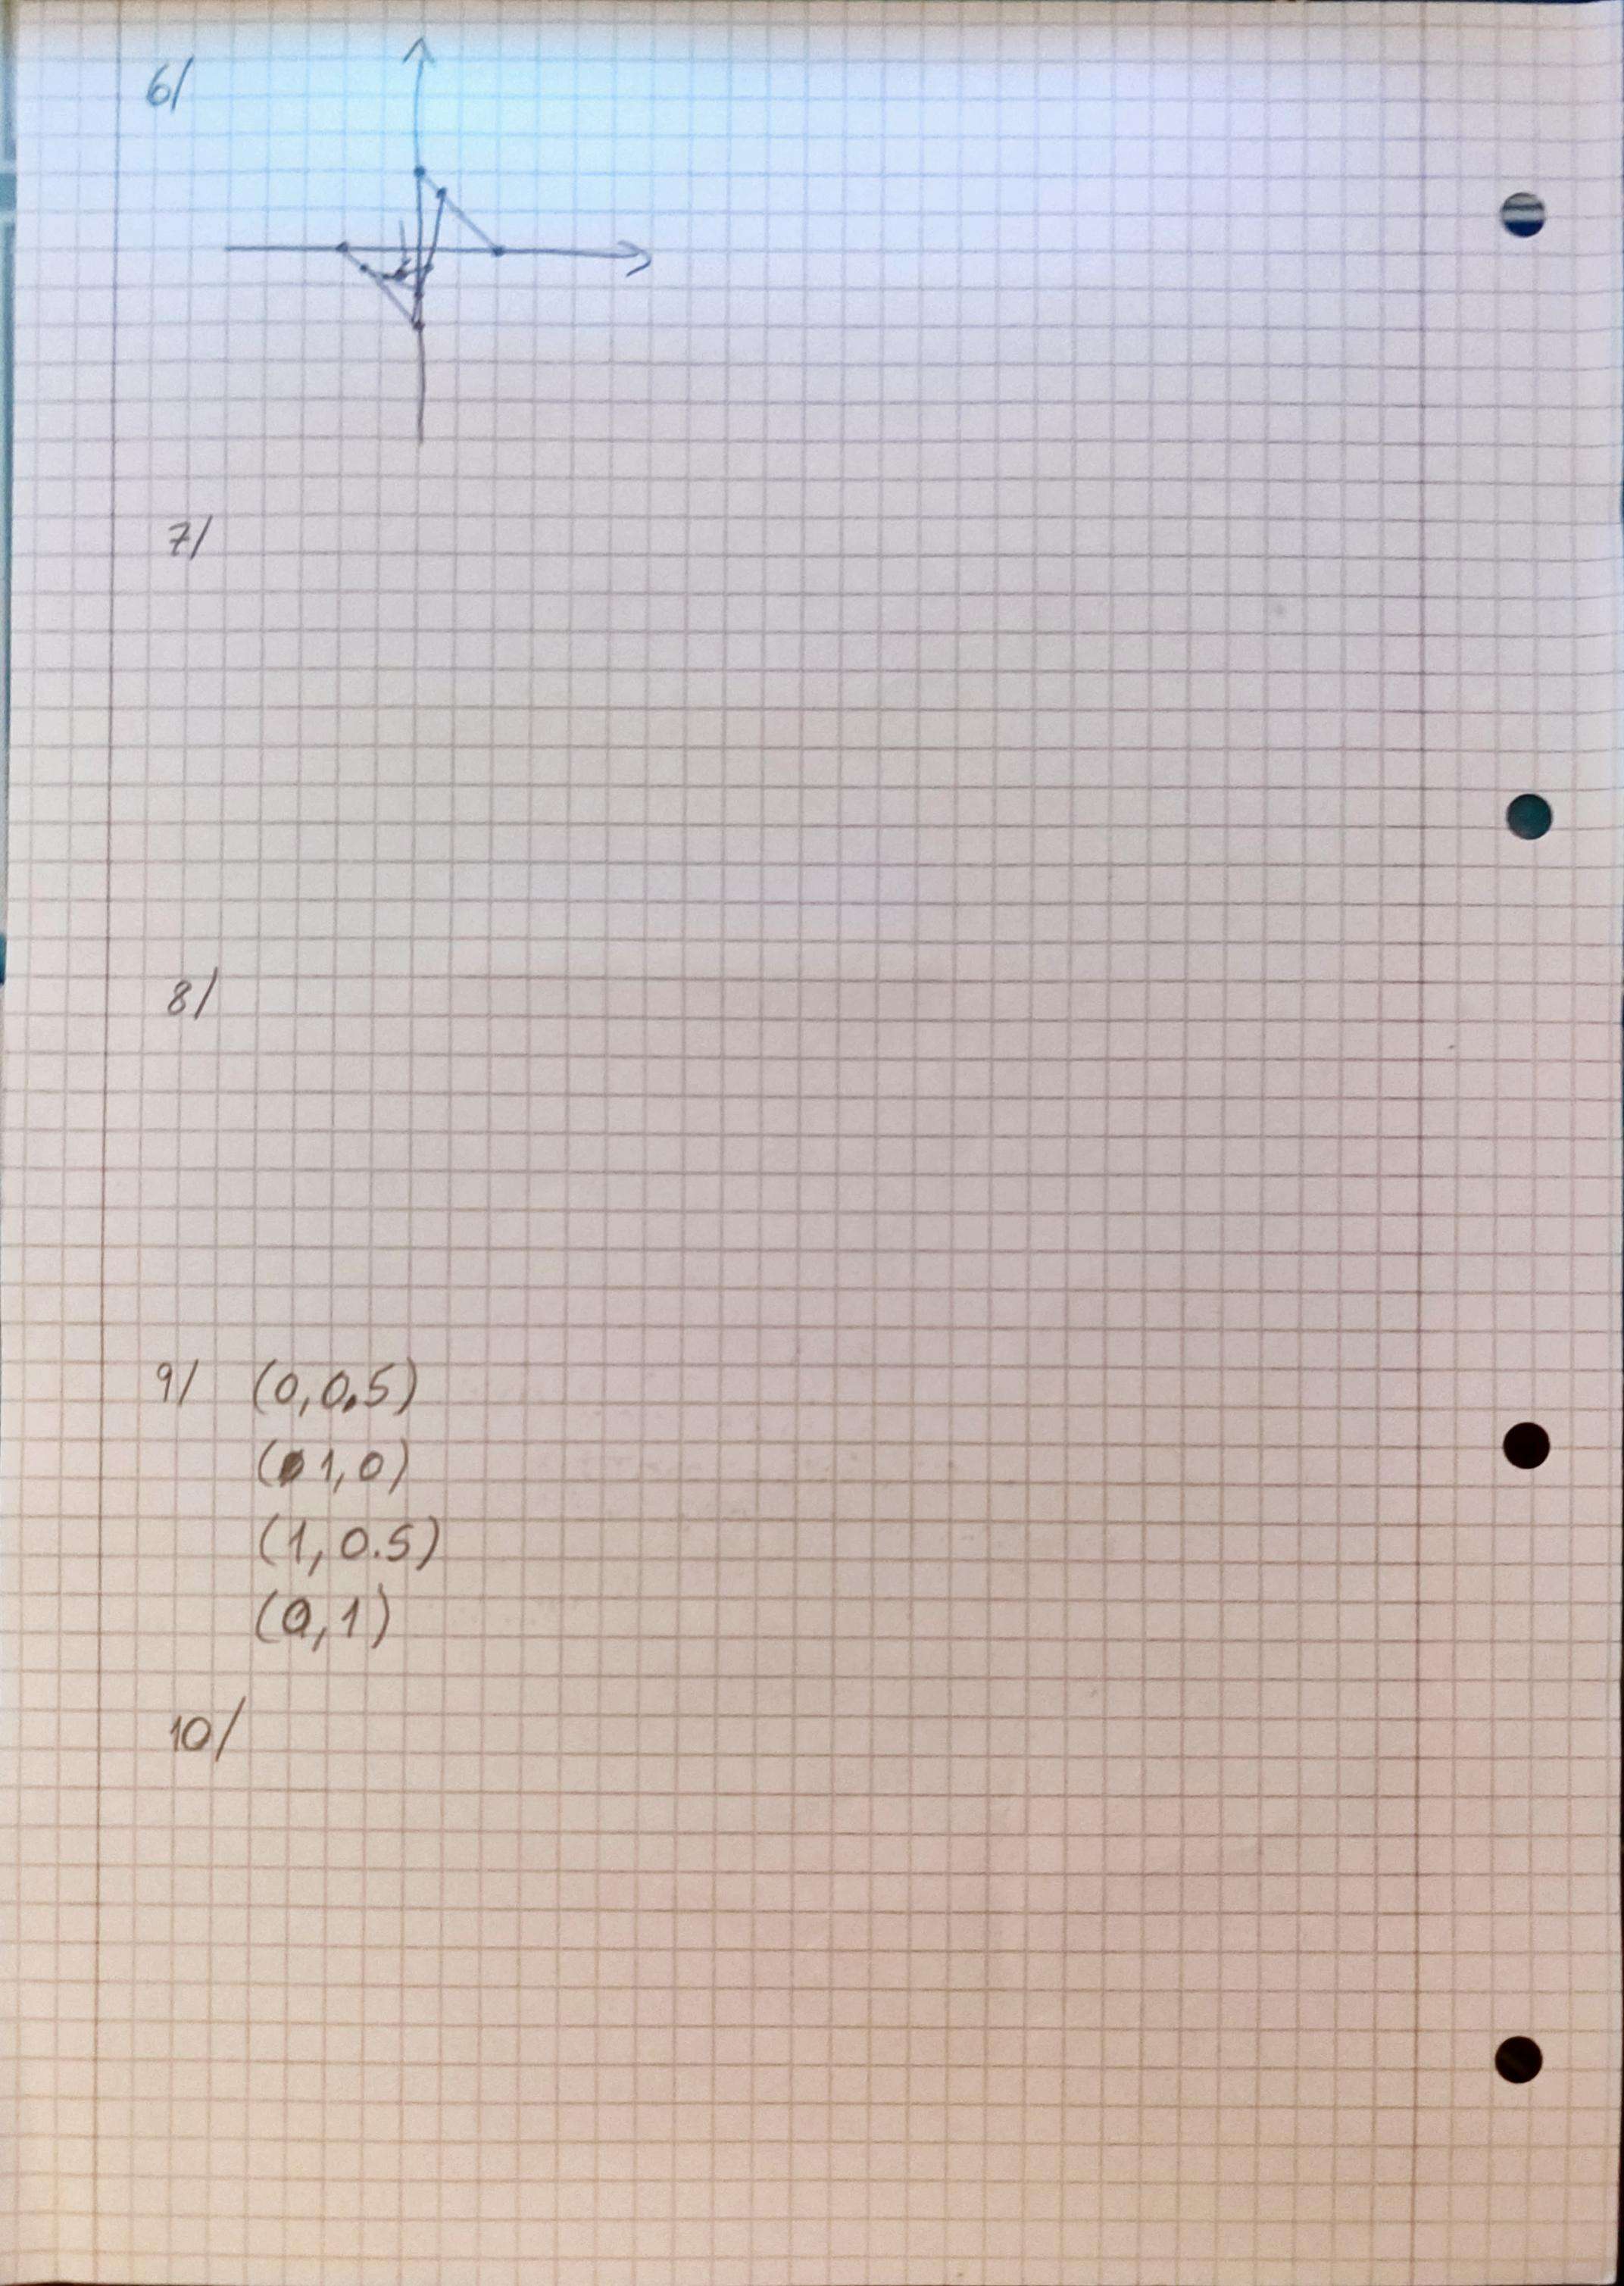 6/
7/
8/
9/ (0,0.5)
(1,0)
(1,0.5)
(0,1)
10/